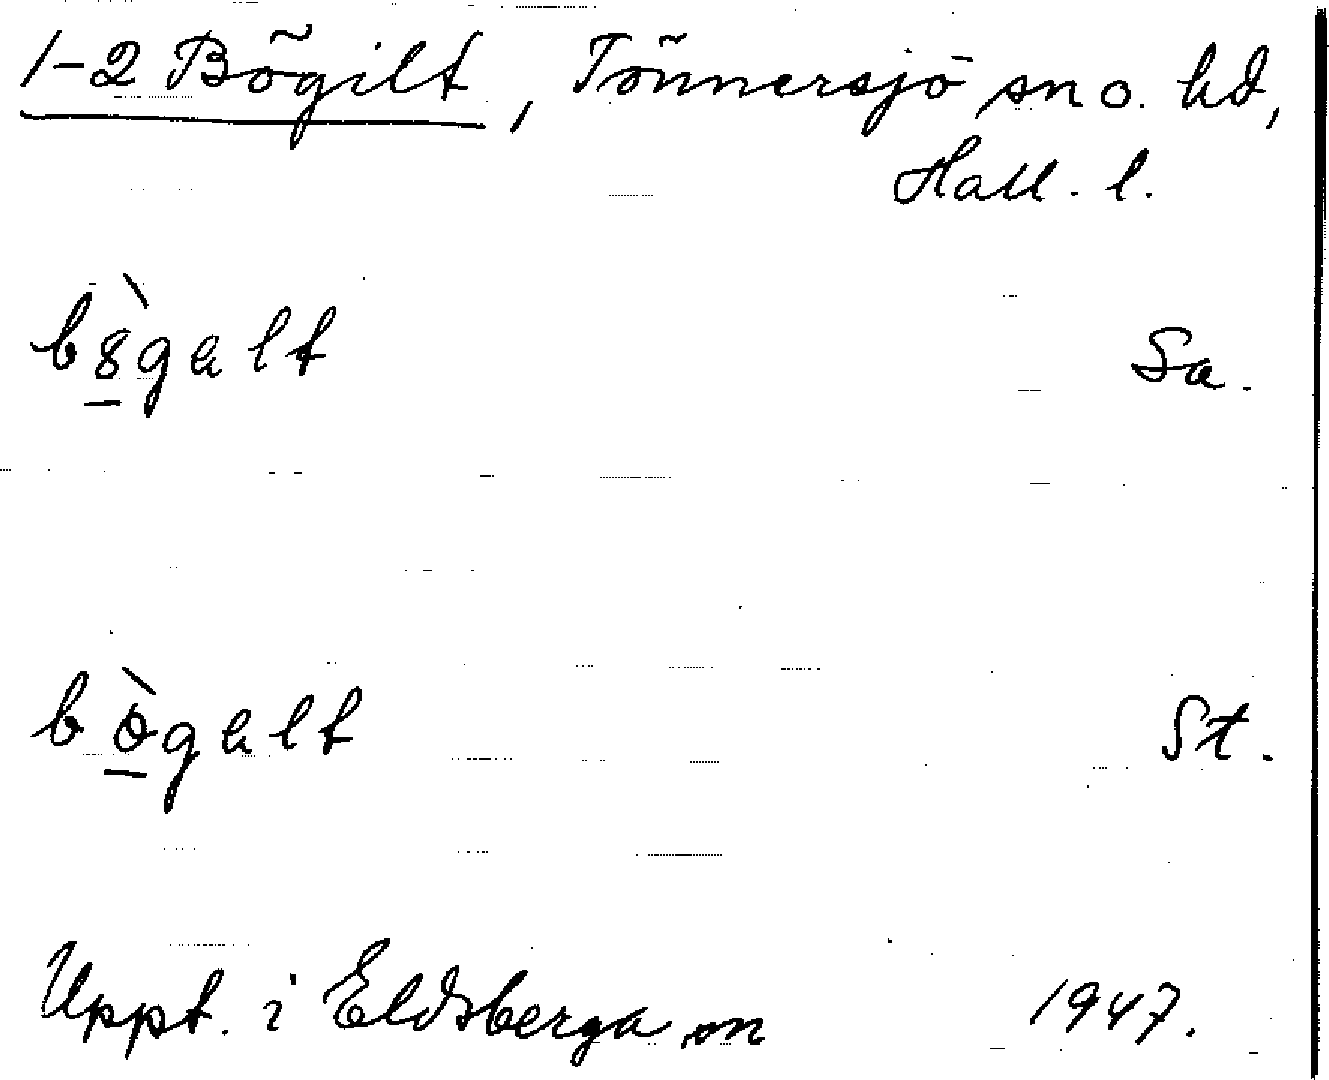 1-2 Bögilt, Tönnersjö sn o. hd,
Hall. l.
b8̀galt Sa.
bògalt St.
Uppt. i Eldsberga sn 1947.